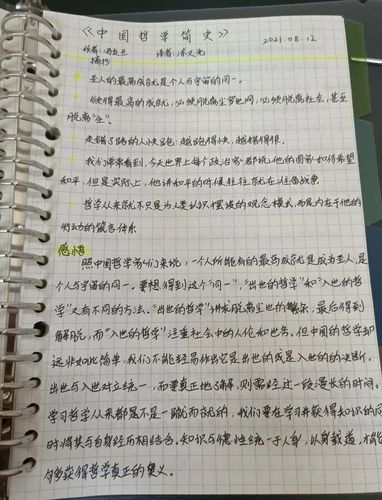 《中国哲学简史》 2021.08.12
作者:冯友兰 译者:涂又光
摘抄
圣人的最高成就是个人与宇宙的同一。
欲得最高的成就,必须脱离尘罗世网,必须脱离社会,甚至
脱离“生”。
走错了路的人快跑:越跑得快,越错得很。
我们常常看到,今天世界上每个政治家都说他的国家如何希望
和平,但是实际上,他讲和平的时候往往就在准备战争
哲学从来就不只是为人类认识摆设的观念模式,而是内在于他的
行动的箴言体系
感悟
照中国哲学家们来说,一个人所能有的最高成就是成为圣人,是
个人与宇宙的同一。要想得到这个“同一”,“出世的哲学”和“入世的哲
学”又有不同的方法。“出世的哲学”讲求脱离尘世的繁杂,最后得到
解脱,而“入世的哲学”注重社会中的人伦和世务。但中国的哲学却
远非如此简单,我们不能轻易作出它是出世的或是入世的的决断。
出世与入世对立统一,而要真正地了解,则需经过一段漫长的时间。
学习哲学从来都是不是一蹴而就的,我们要在学习并获得知识的同
时将其与自身经历相结合。知识与德性统一于人身,以身载道,才能
够获得哲学真正的奥义。